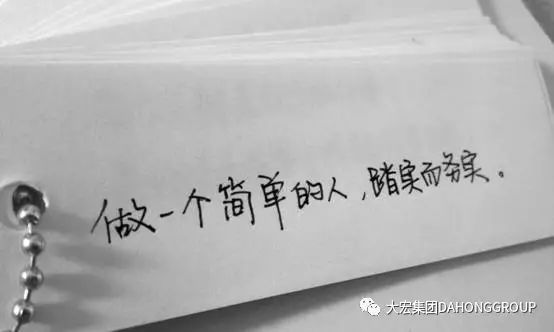 做一个简单的人，踏实而务实。
大宏集团DAHONGGROUP